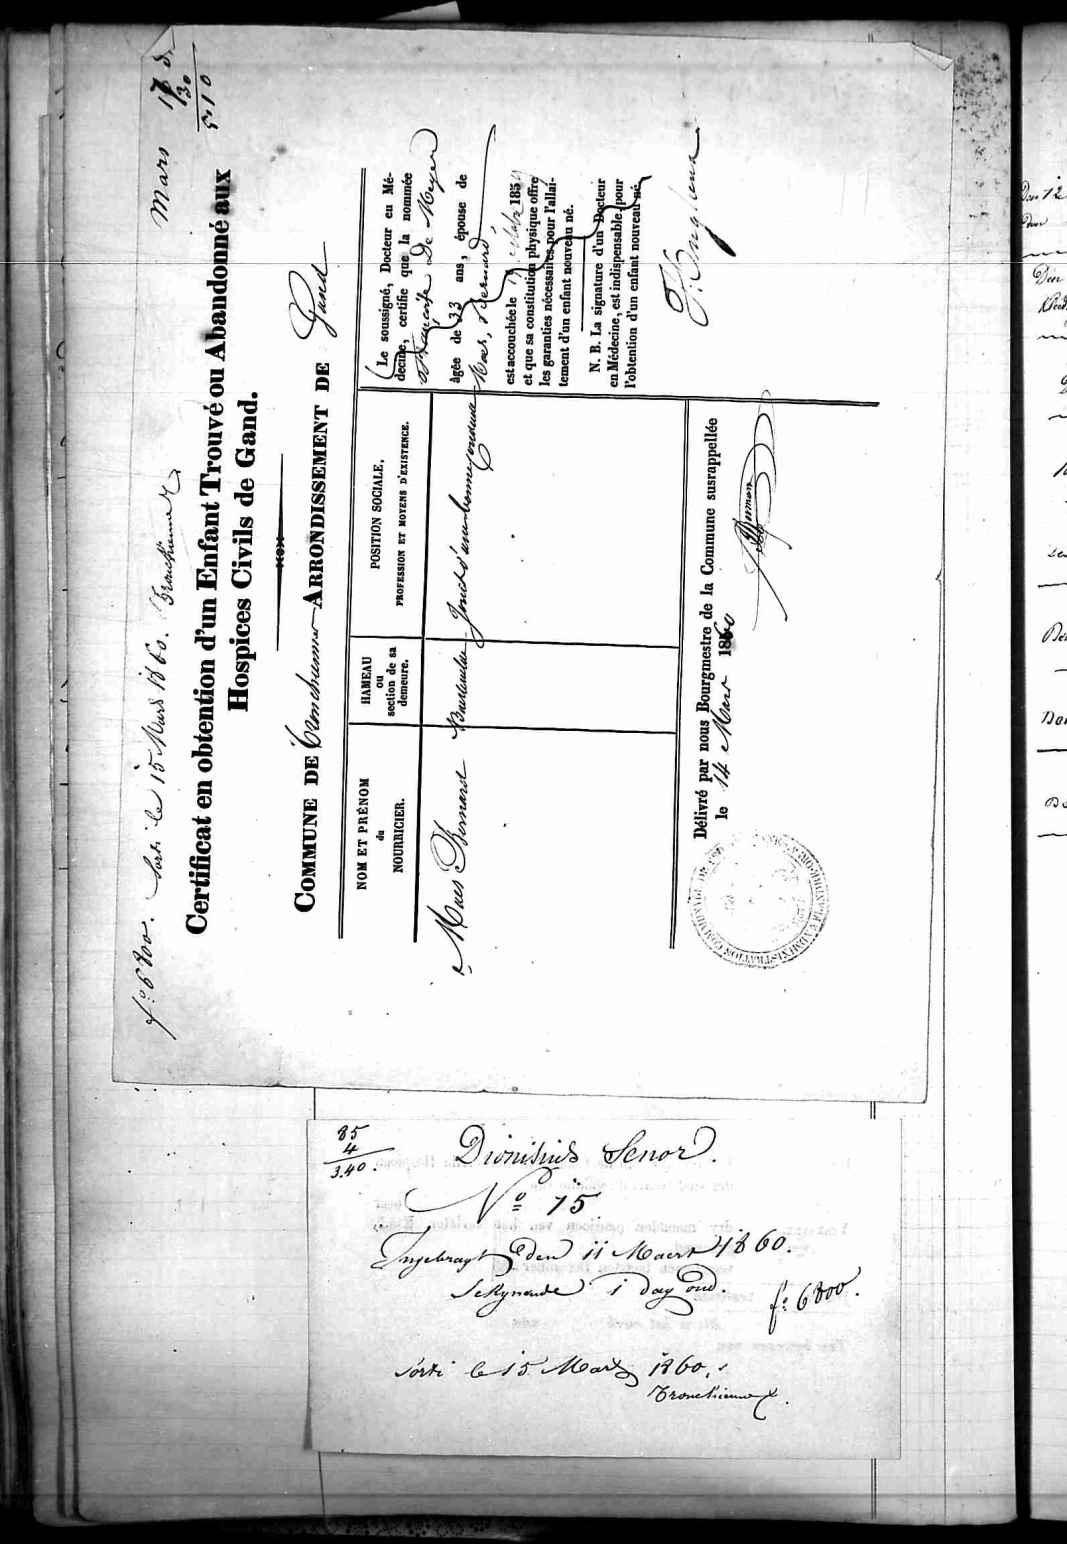 fo 6800. Sorti le 15 Mars 1860. Tronchiennes
Mars 17 d.
30
5.10
Certificat en obtention d'un Enfant Trouvé ou Abandonné aux
Hospices Civils de Gand.
COMMUNE DE Tronchiennes ARRONDISSEMENT DE Gand
NOM ET PRÉNOM
du
NOURRICIER.
HAMEAU
ou
section de sa
demeure.
POSITION SOCIALE,
PROFESSION ET MOYENS D'EXISTENCE.
Maes Bernard
Jouit d'une bonne conduite
Le soussigné, Docteur en Mé-
decine, certifie que la nommée
Françoise De Meyer
âgée de 33 ans, épouse de
Maes, Bernard
est accouchée le 185
et que sa constitution physique offre
les garanties nécessaires pour l'allai-
tement d'un enfant nouveau né.
N. B. La signature d'un Docteur
en Médecine, est indispensable pour
l'obtention d'un enfant nouveau né.
Délivré par nous Bourgmestre de la Commune susrappellée
le 14 Mars 1860
85
4
3.40.
Dionisius Senor.
No 75
Ingebragt den 11 Maert 1860.
Schynende 1 dag oud.
fo 6800.
Sorti le 15 Mars 1860.
Tronchiennes.